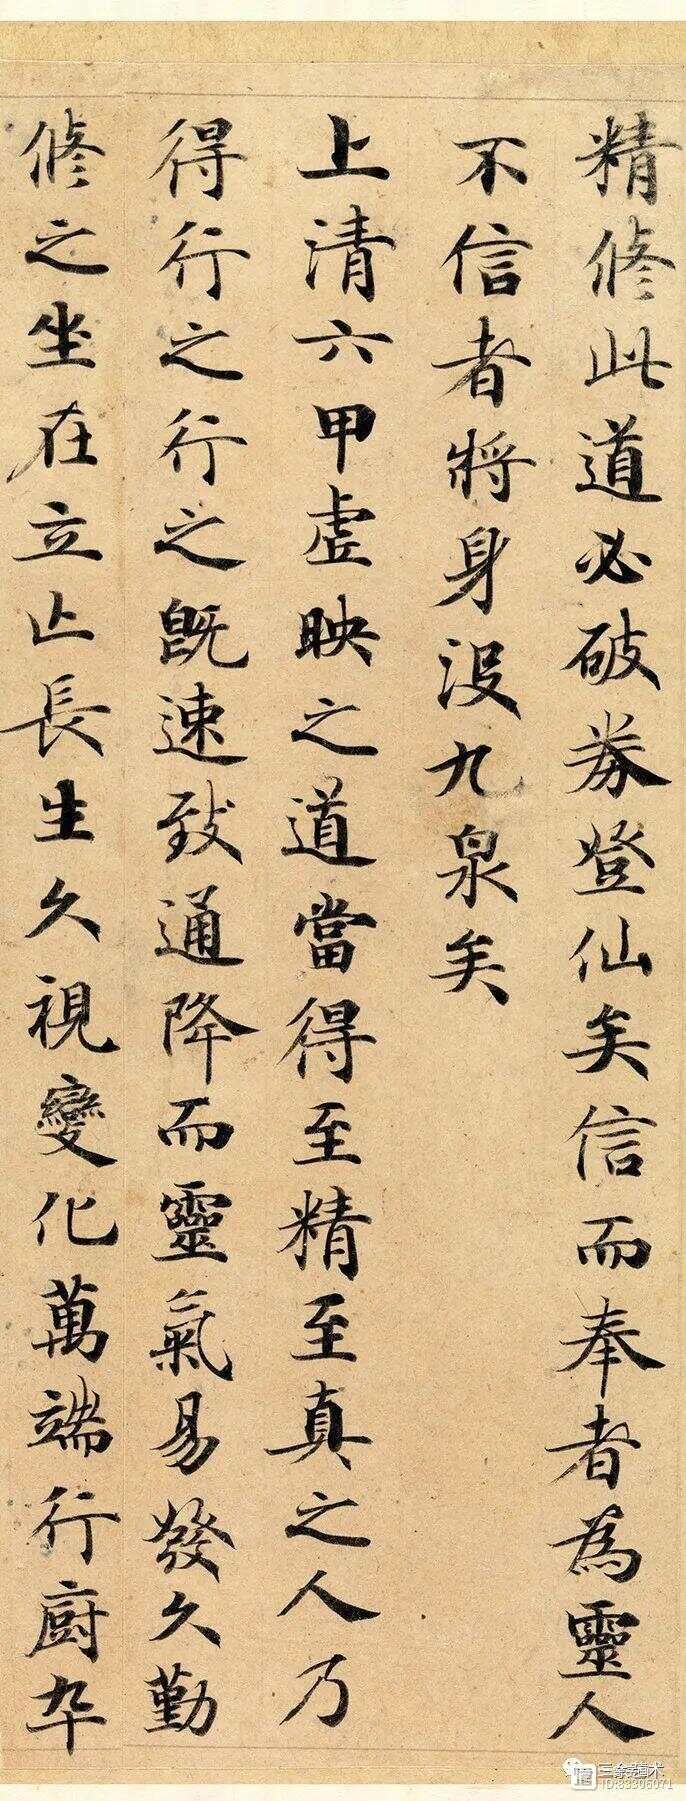 精修此道必破券登仙矣信而奉者為靈人
不信者將身沒九泉矣
上清六甲虛映之道當得至精至真之人乃
得行之行之既速致通降而靈氣易發久勤
修之坐在立亡長生久視變化萬端行廚卒
ID:83306071